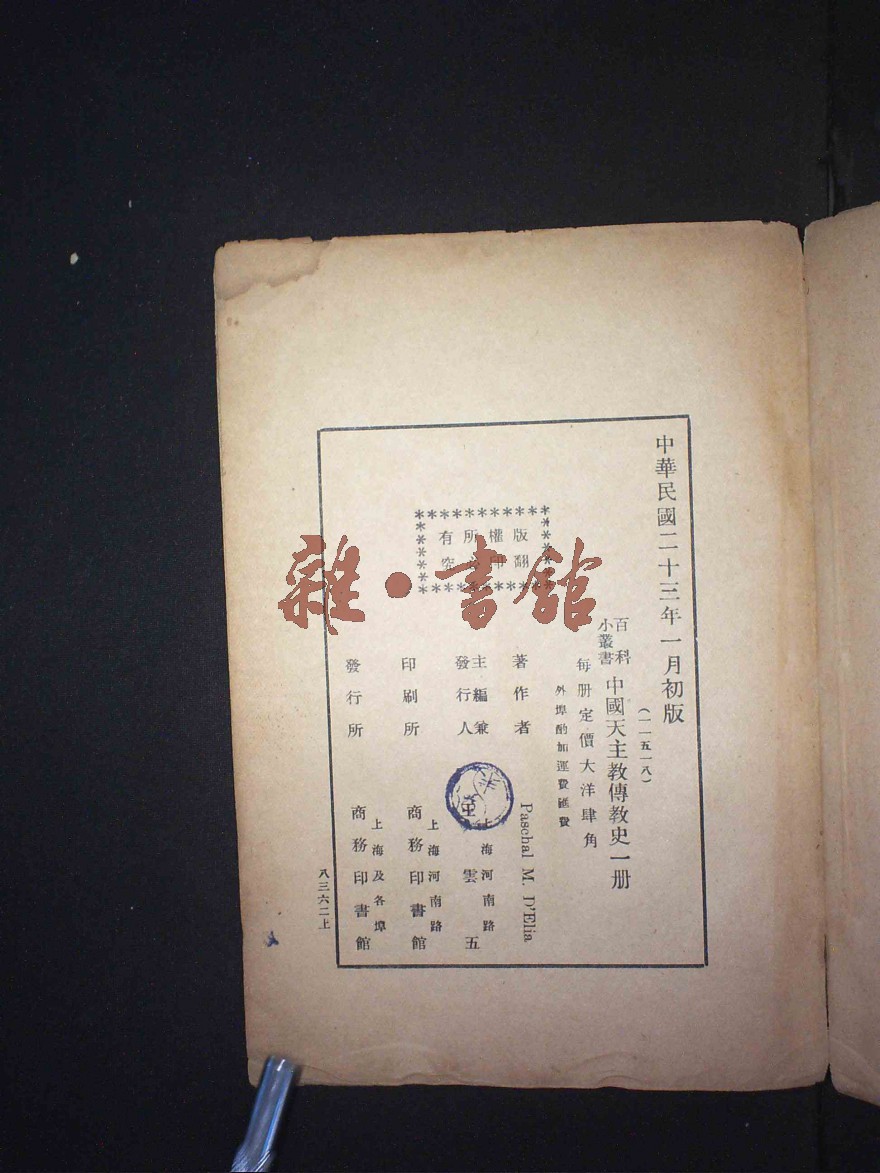 中華民國二十三年一月初版
(一一五一八)
百科
小叢書
中國天主教傳教史一册
每册定價大洋肆角
外埠酌加運費匯費
版權所有
翻印
究
著作者
Paschal M. D'Elia
主編兼
發行人
上海河南路
雲五
印刷所
上海河南路
商務印書館
發行所
上海及各埠
商務印書館
八三六二上
雜·書館